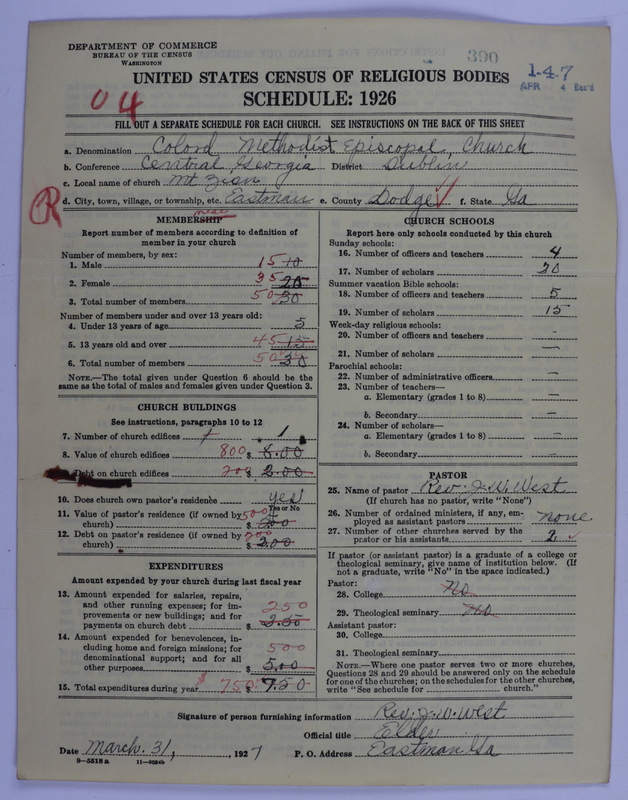 DEPARTMENT OF COMMERCE
BUREAU OF THE CENSUS
WASHINGTON
390
1-4-7
APR 4 Rec'd
UNITED STATES CENSUS OF RELIGIOUS BODIES
SCHEDULE: 1926
04
FILL OUT A SEPARATE SCHEDULE FOR EACH CHURCH. SEE INSTRUCTIONS ON THE BACK OF THIS SHEET
a. Denomination Colord Methodist Episcopal, Church
b. Conference Central, Georgia District Dublin
c. Local name of church Mt Zion
R
d. City, town, village, or township, etc. Eastman e. County Dodge f. State Ga
near
MEMBERSHIP
Report number of members according to definition of
member in your church
Number of members, by sex:
1. Male 15 10
2. Female 35 20
3. Total number of members 50 30
Number of members under and over 13 years old:
4. Under 13 years of age 5
5. 13 years old and over 45 15
6. Total number of members 50 30
NOTE.—The total given under Question 6 should be the
same as total of males and females given under Question 3.
CHURCH BUILDINGS
See instructions, paragraphs 10 to 12
7. Number of church edifices 1
8. Value of church edifices 800 $ 8.00
Debt on church edifices 200 $ 2.00
10. Does church own pastor's residence yes
Yes or No
11. Value of pastor's residence (if owned by
church) 500 $
12. Debt on pastor's residence (if owned by
church) 200 $ 2.00
EXPENDITURES
Amount expended by your church during last fiscal year
13. Amount expended for salaries, repairs,
and other running expenses; for im-
provements or new buildings; and for
payments on church debt 250 $ 2.50
14. Amount expended for benevolences, in-
cluding home and foreign missions; for
denominational support; and for all
other purposes 500 $ 5.00
15. Total expenditures during year $ 750 $ 7.50
CHURCH SCHOOLS
Report here only schools conducted by this church
Sunday schools:
16. Number of officers and teachers 4
17. Number of scholars 20
Summer vacation Bible schools:
18. Number of officers and teachers 5
19. Number of scholars 15
Week-day religious schools:
20. Number of officers and teachers -
21. Number of scholars —
Parochial schools:
22. Number of administrative officers —
23. Number of teachers—
a. Elementary (grades 1 to 8) —
b. Secondary —
24. Number of scholars—
a. Elementary (grades 1 to 8) —
b. Secondary —
PASTOR
25. Name of pastor Rev. J. W. West
(If church has no pastor, write "None")
26. Number of ordained ministers, if any, em-
ployed as assistant pastors none
27. Number of other churches served by the
pastor or his assistants 2
If pastor (or assistant pastor) is a graduate of a college or
theological seminary, give name of institution below. (If
not a graduate, write "No" in the space indicated.)
Pastor:
28. College No
29. Theological seminary No
Assistant pastor:
30. College
31. Theological seminary
NOTE.—Where one pastor serves two or more churches,
Questions 28 and 29 should be answered only on the schedule
for one of the churches; on the schedules for the other churches,
write "See schedule for church."
Signature of person furnishing information Rev. J. W. West
Official title Elder
Date March. 31, , 1927 P. O. Address Eastman Ga
9—5518a 11—9054b